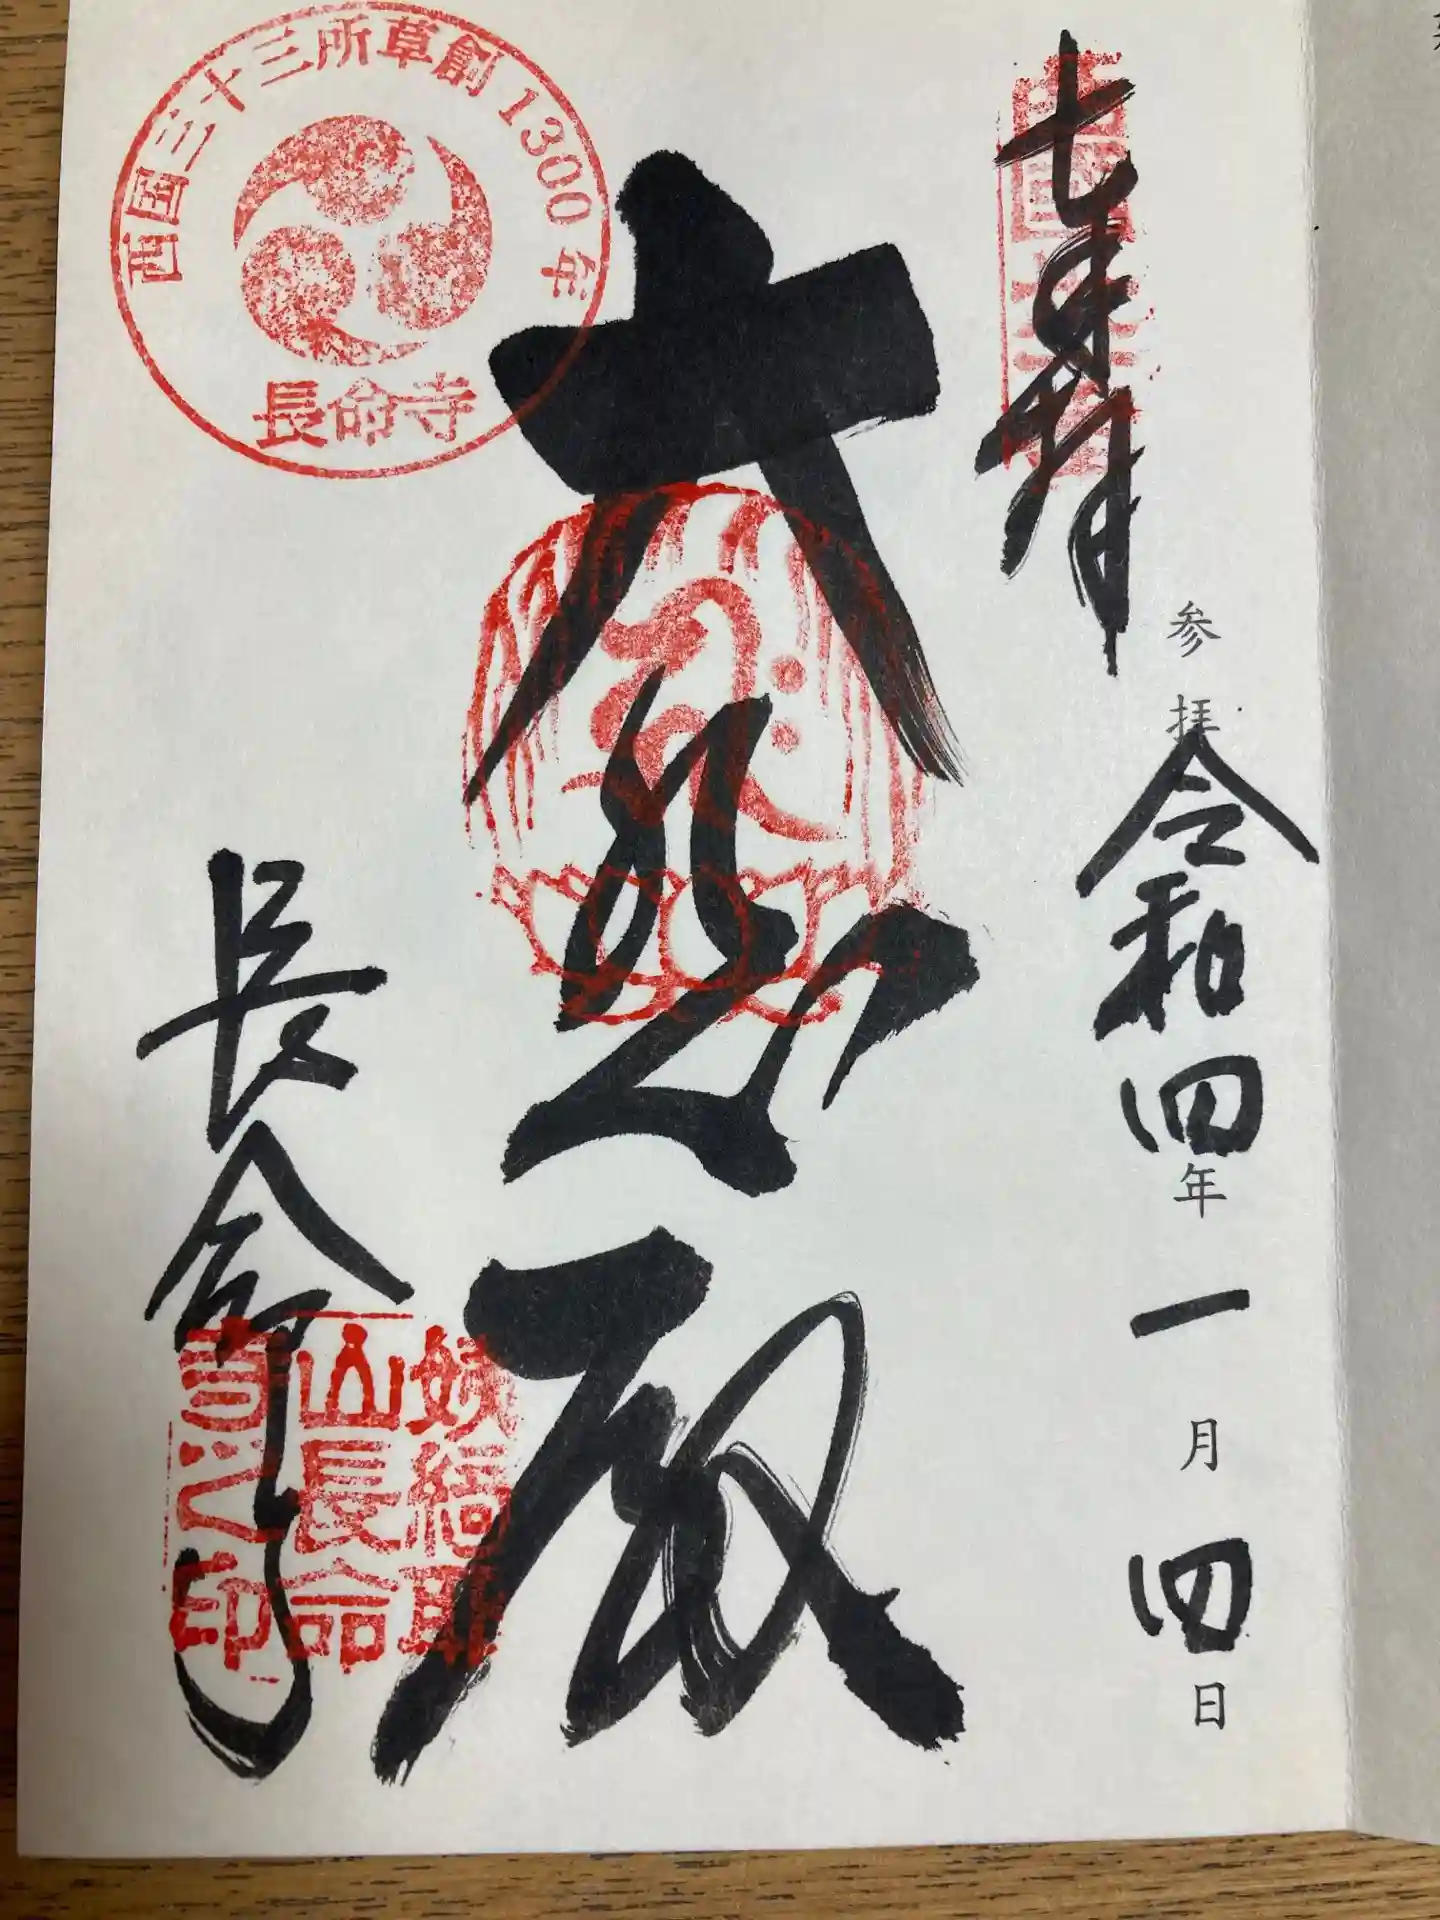 七奉拝
西国三十一番
参拝
令和四年一月四日
大悲殿
西国三十三所草創1300年
長命寺
長命寺
姨綺耶
山長命
寺之印